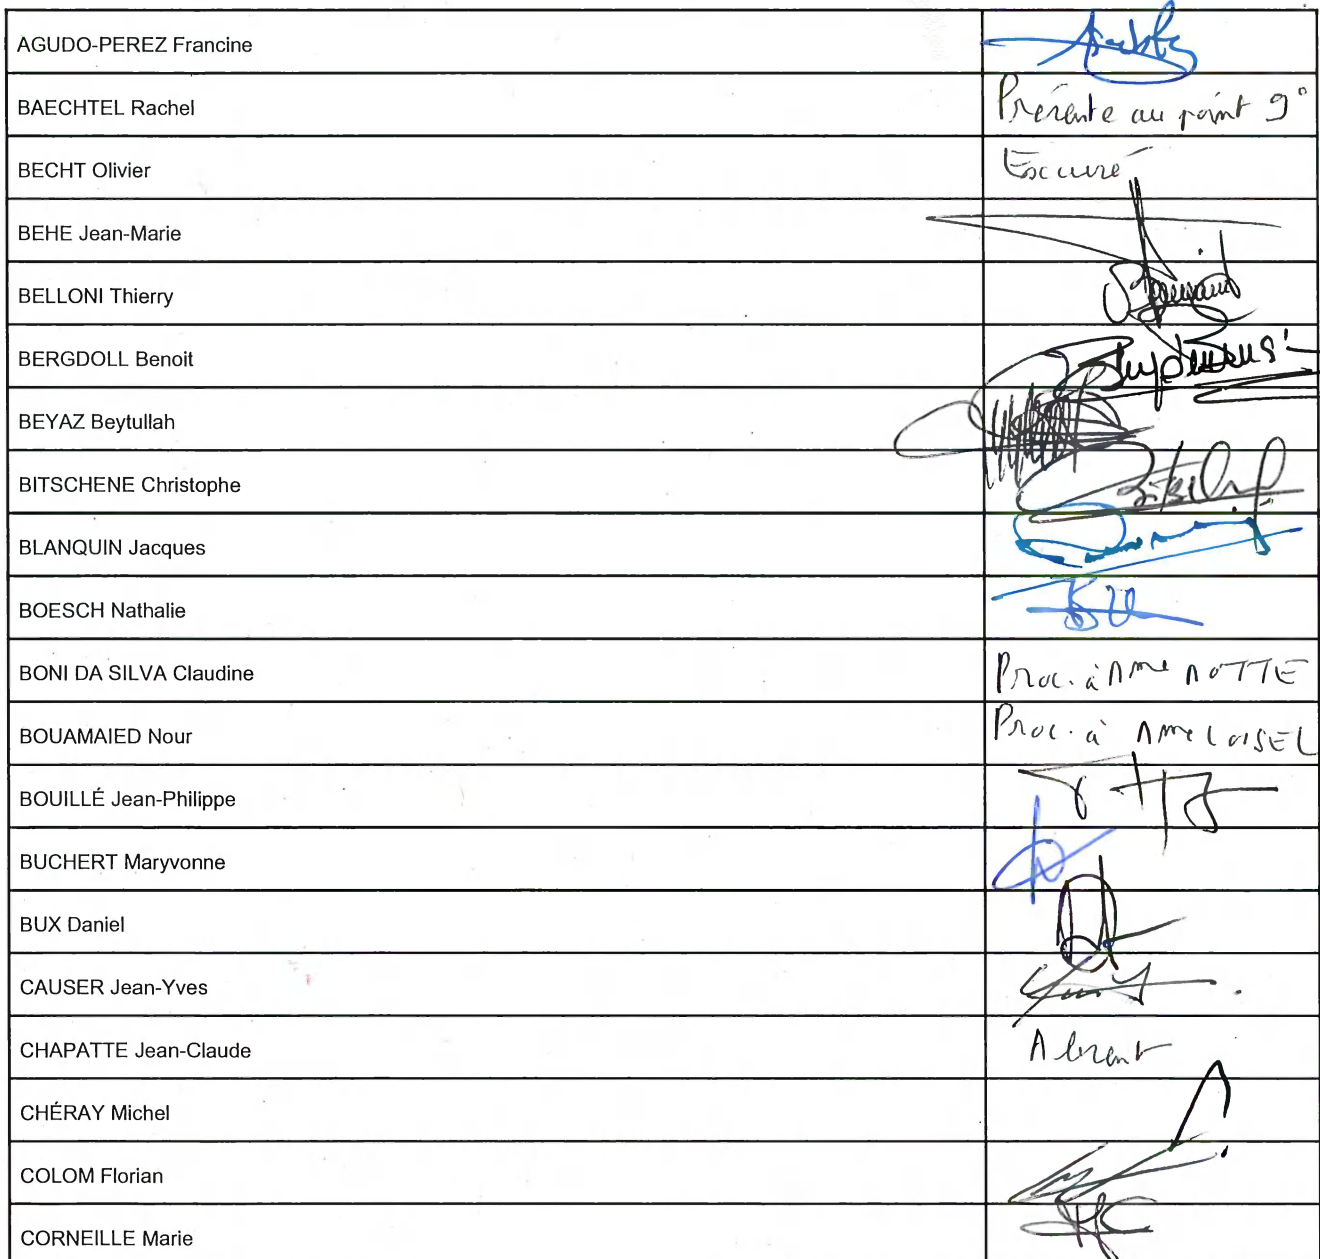 AGUDO-PEREZ Francine
BAECHTEL Rachel
Présente au point 9°
BECHT Olivier
Excusé
BEHE Jean-Marie
BELLONI Thierry
BERGDOLL Benoit
BEYAZ Beytullah
BITSCHENE Christophe
BLANQUIN Jacques
BOESCH Nathalie
BONI DA SILVA Claudine
Proc. à Mme MOTTE
BOUAMAIED Nour
Proc. à Mme LOISEL
BOUILLÉ Jean-Philippe
BUCHERT Maryvonne
BUX Daniel
CAUSER Jean-Yves
CHAPATTE Jean-Claude
Absent
CHÉRAY Michel
COLOM Florian
CORNEILLE Marie